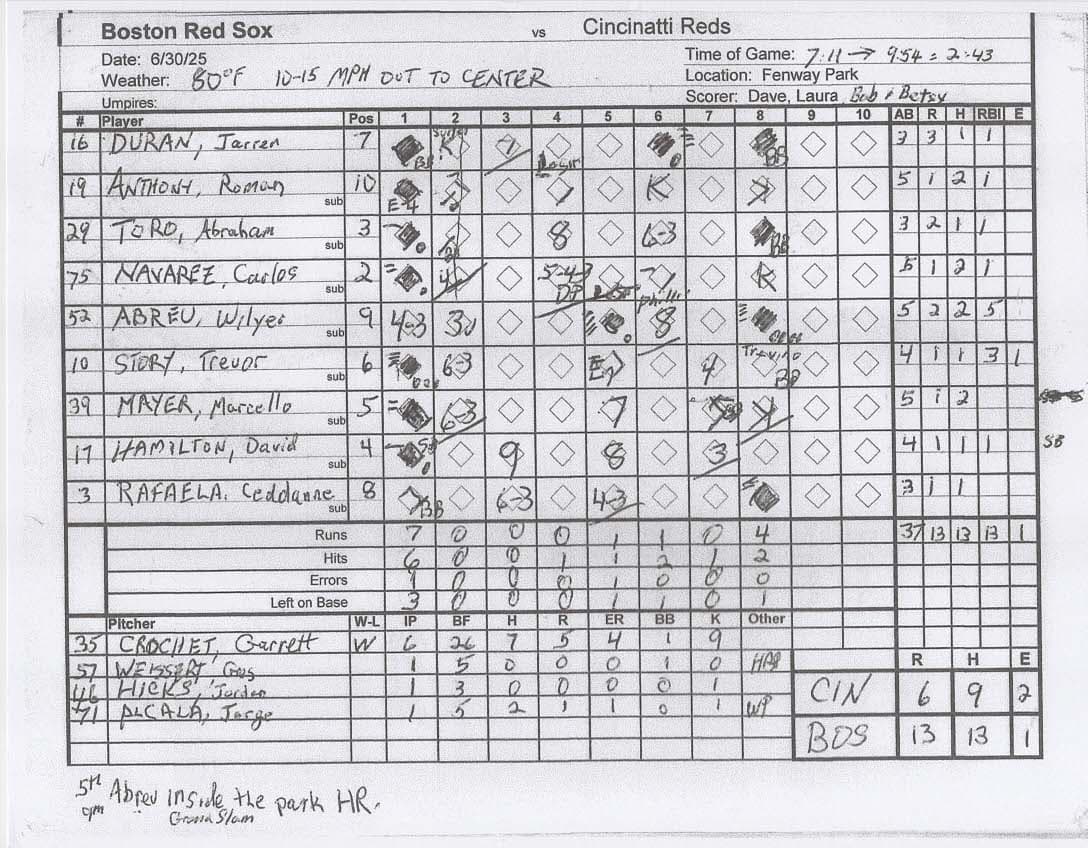 Boston Red Sox vs Cincinatti Reds
Date: 6/30/25 Time of Game: 7:11 → 9:54 = 2:43
Weather: 80°F 10-15 MPH OUT TO CENTER Location: Fenway Park
Umpires: Scorer: Dave, Laura Bob + Betsy
# Player Pos 1 2 3 4 5 6 7 8 9 10 AB R H RBI E
16 DURAN, Jarren 7 K 7 BB 3 3 1 1
19 ANTHONY, Roman 10 E-4 K 5 1 2 1
sub
29 TORO, Abraham 3 8 6-3 BB 3 2 1 1
sub
75 NAVAREZ, Carlos 2 4 5-4-3 DP K 5 1 2 1
sub
52 ABREU, Wilyer 9 4-3 3U 8 5 2 2 5
sub
10 STORY, Trevor 6 6-3 E7 4 Trevino 4 1 1 3 1
sub
39 MAYER, Marcello 5 6-3 7 5 1 2
sub
17 HAMILTON, David 4 SB 9 8 3 4 1 1 1 SB
sub
3 RAFAELA, Ceddanne 8 BB 6-3 4-3 3 1 1
sub
Runs 7 0 0 0 1 1 0 4 37 13 13 13 1
Hits 6 0 0 1 1 2 1 2
Errors 1 0 0 0 1 0 0 0
Left on Base 3 0 0 0 1 1 0 1
Pitcher W-L IP BF H R ER BB K Other
35 CROCHET, Garrett W 6 26 7 5 4 1 9
57 WEISSERT, Gus 1 5 0 0 0 1 0 HPB
46 HICKS, Jordan 1 3 0 0 0 0 1
71 ALCALA, Jorge 1 5 2 1 1 0 1 WP
R H E
CIN 6 9 2
BOS 13 13 1
5th Abreu inside the park HR.
Grand Slam